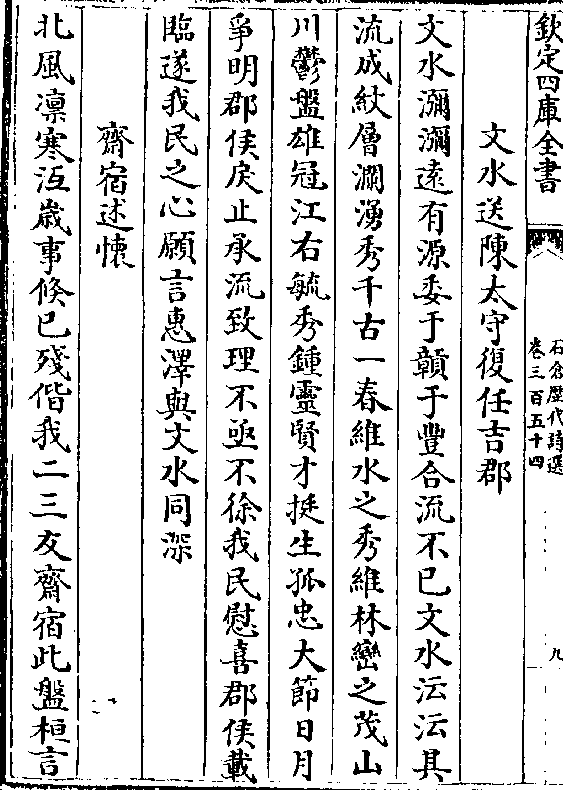 欽定四庫全書
石倉歷代詩選
卷三百五十四
九
文水送陳太守復任吉郡
文水瀰瀰遠有源委于贛于豐合流不已文水沄沄其
流成紋層瀾湧秀千古一春維水之秀維林巒之茂山
川鬱盤雄冠江右毓秀鍾靈賢才挺生孤忠大節日月
爭明郡侯戾止承流致理不亟不徐我民慰喜郡侯載
臨遂我民之心願言惠澤與文水同深
齋宿述懷
北風凛寒沍歲事倏已殘偕我二三友齋宿此盤桓言